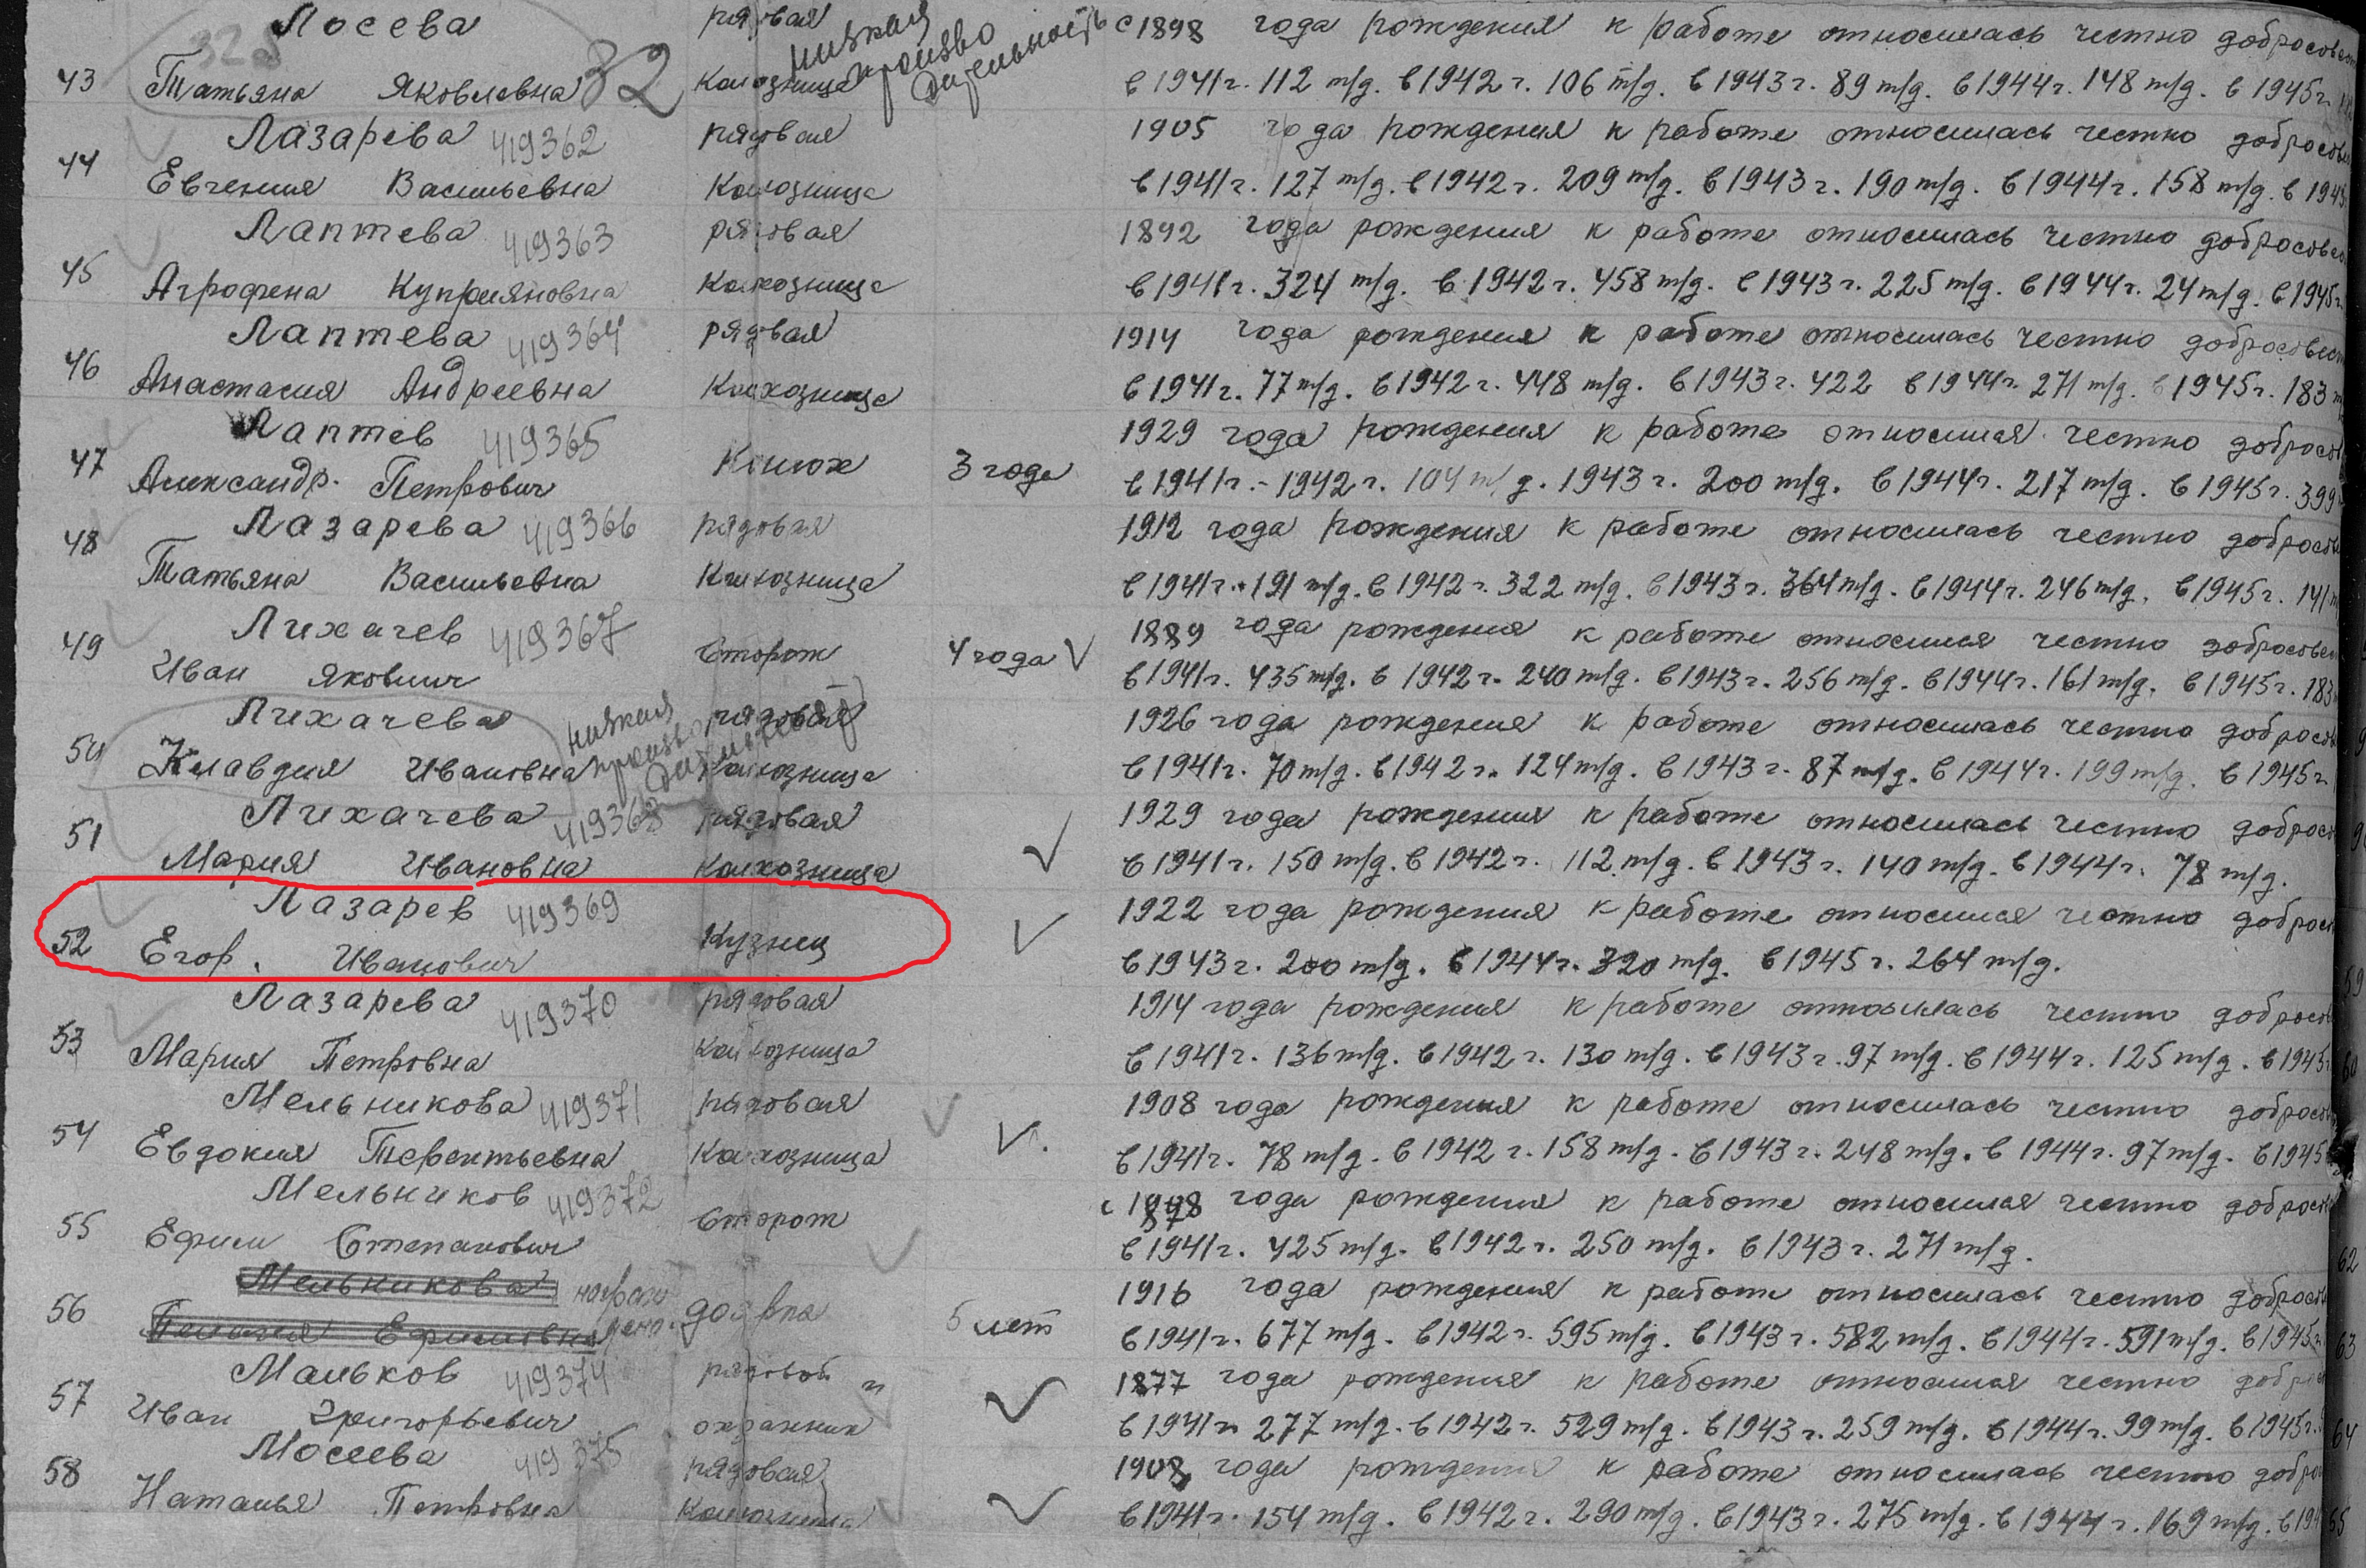 Лосева рядовая низкая с 1898 года рождения к работе относилась честно добросовест
43 Татьяна Яковлевна 32 Колхозница произво дительность в 1941г. 112 т/д. в 1942 г. 106 т/д. в 1943 г. 89 т/д. в 1944 г. 148 т/д. в 1945 г.
Лазарева 419362 рядовая 1905 года рождения к работе относилась честно добросове
44 Евгения Васильевна Колхозница в 1941 г. 127 т/д. в 1942 г. 209 т/д. в 1943 г. 190 т/д. в 1944 г. 158 т/д. в 1945
Лаптева 419363 рядовая 1892 года рождения к работе относилась честно добросовес
45 Агрофена Куприяновна Колхозница в 1941 г. 324 т/д. в 1942 г. 458 т/д. в 1943 г. 225 т/д. в 1944 г. 24 т/д. в 1945 г.
Лаптева 419364 рядовая 1914 года рождения к работе относилась честно добросовест
46 Анастасия Андреевна Колхозница в 1941 г. 77 т/д. в 1942 г. 448 т/д. в 1943 г. 422 в 1944 г. 271 т/д. в 1945 г. 183
Лаптев 419365 1929 года рождения к работе относился честно добросо
47 Александр. Петрович Конюх 3 года в 1941 г. - 1942 г. 104 т/д. 1943 г. 200 т/д. в 1944 г. 217 т/д. в 1945 г. 399
Лазарева 419366 рядовая 1912 года рождения к работе относилась честно добросов
48 Татьяна Васильевна Колхозница в 1941 г. 191 т/д. в 1942 г. 322 т/д. в 1943 г. 364 т/д. в 1944 г. 246 т/д. в 1945 г. 141
Лихачев 419367 1889 года рождения к работе относился честно добросовес
49 Иван Яковлич Сторож 4 года в 1941 г. 435 т/д. в 1942 г. 240 т/д. в 1943 г. 256 т/д. в 1944 г. 161 т/д. в 1945 г. 183
Лихачева низкая рядовая 1926 года рождения к работе относилась честно добросо
50 Клавдия Ивановна Колхозница в 1941 г. 70 т/д. в 1942 г. 124 т/д. в 1943 г. 87 т/д. в 1944 г. 199 т/д. в 1945 г
Лихачева 419368 рядовая 1929 года рождения к работе относилась честно добросо
51 Мария Ивановна Колхозница в 1941 г. 150 т/д. в 1942 г. 112 т/д. в 1943 г. 140 т/д. в 1944 г. 78 т/д.
Лазарев 419369 1922 года рождения к работе относился честно доброс
52 Егор. Иванович Кузнец в 1943 г. 200 т/д. в 1944 г. 320 т/д. в 1945 г. 264 т/д.
Лазарева 419370 рядовая 1914 года рождения к работе относилась честно добросо
53 Мария Петровна Колхозница в 1941 г. 136 т/д. в 1942 г. 130 т/д. в 1943 г. 97 т/д. в 1944 г. 125 т/д. в 1945
Мельникова 419371 рядовая 1908 года рождения к работе относилась честно добросо
54 Евдокия Терентьевна Колхозница в 1941 г. 78 т/д. в 1942 г. 158 т/д. в 1943 г. 248 т/д. в 1944 г. 97 т/д. в 1945
Мельников 419372 с 1878 года рождения к работе относился честно добросо
55 Ефим Степанович Сторож в 1941 г. 425 т/д. в 1942 г. 250 т/д. в 1943 г. 271 т/д.
Мельникова 1916 года рождения к работе относилась честно добросо
56 Пелагея Ефимовна доярка 5 лет в 1941 г. 677 т/д. в 1942 г. 595 т/д. в 1943 г. 582 т/д. в 1944 г. 591 т/д. в 1945 г.
Мальков 419374 рядовой и 1877 года рождения к работе относился честно добр
57 Иван Григорьевич охранник в 1941 г. 277 т/д. в 1942 г. 529 т/д. в 1943 г. 259 т/д. в 1944 г. 99 т/д. в 1945 г.
Мосеева 419375 рядовая 1908 года рождения к работе относилась честно добро
58 Наталья Петровна Колхозница в 1941 г. 154 т/д. в 1942 г. 290 т/д. в 1943 г. 275 т/д. в 1944 г. 169 т/д. в 194